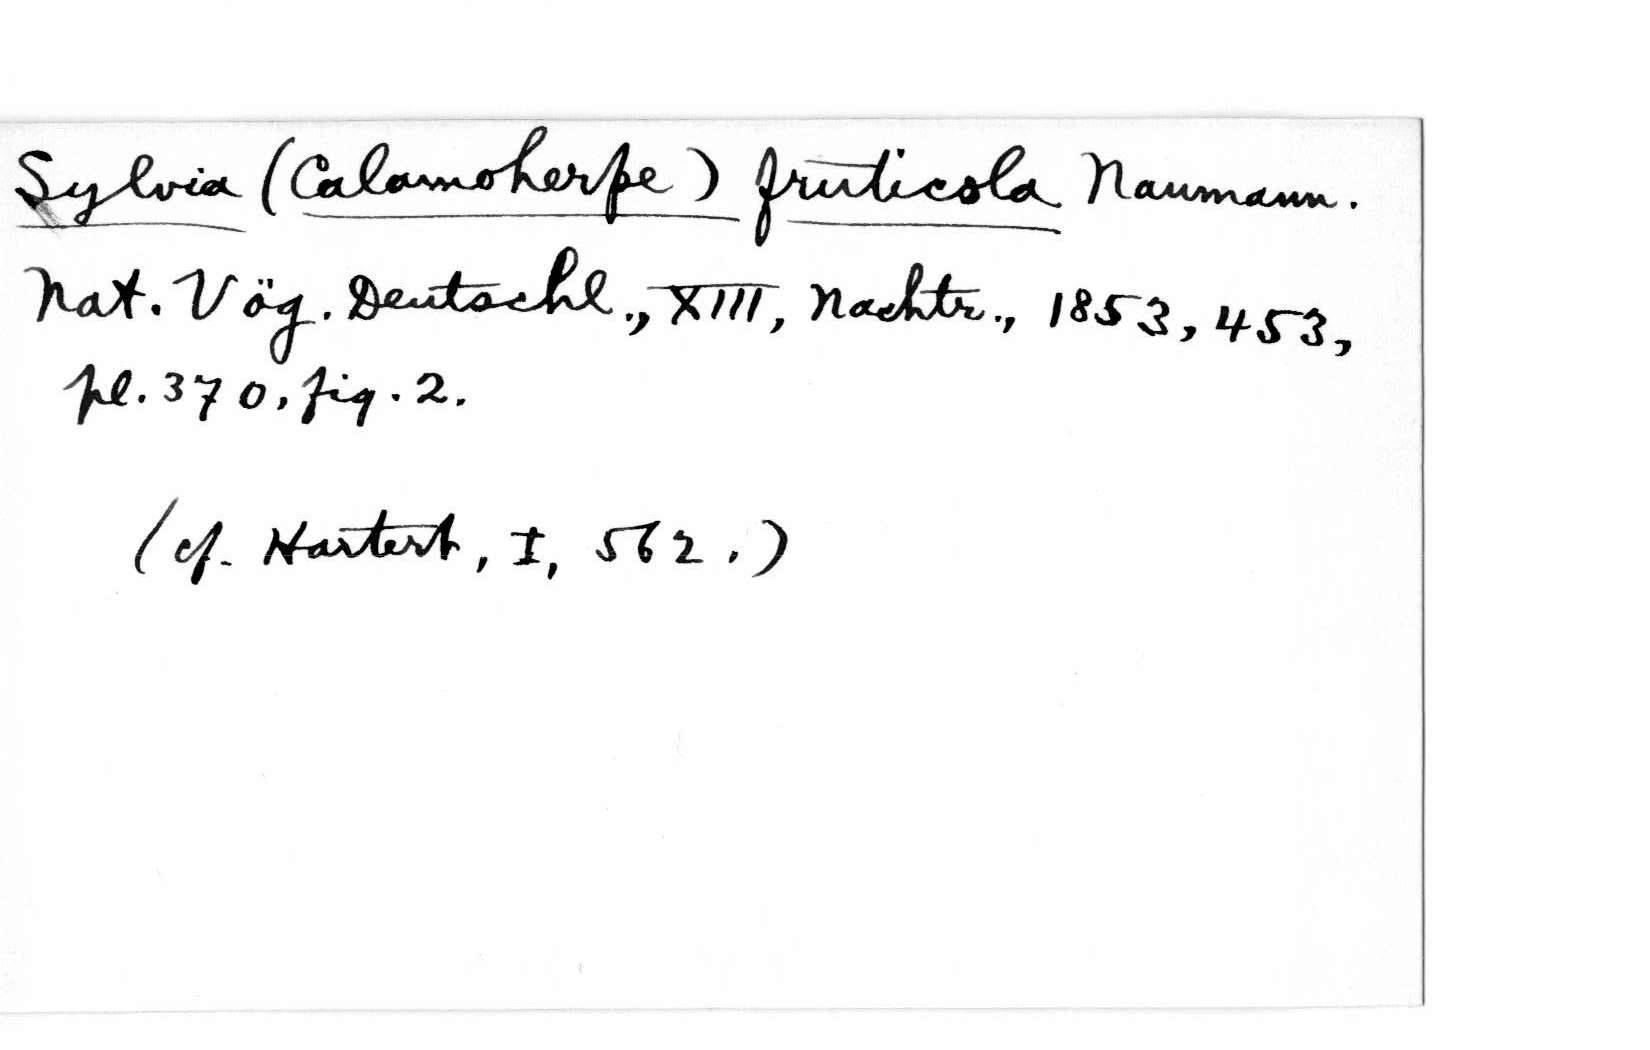 Sylvia (Calamoherpe) fruticola Naumann.
Nat. Vög. Deutschl., XIII, Nachtr., 1853, 453,
pl. 370, fig. 2.
(cf. Hartert, I, 562.)